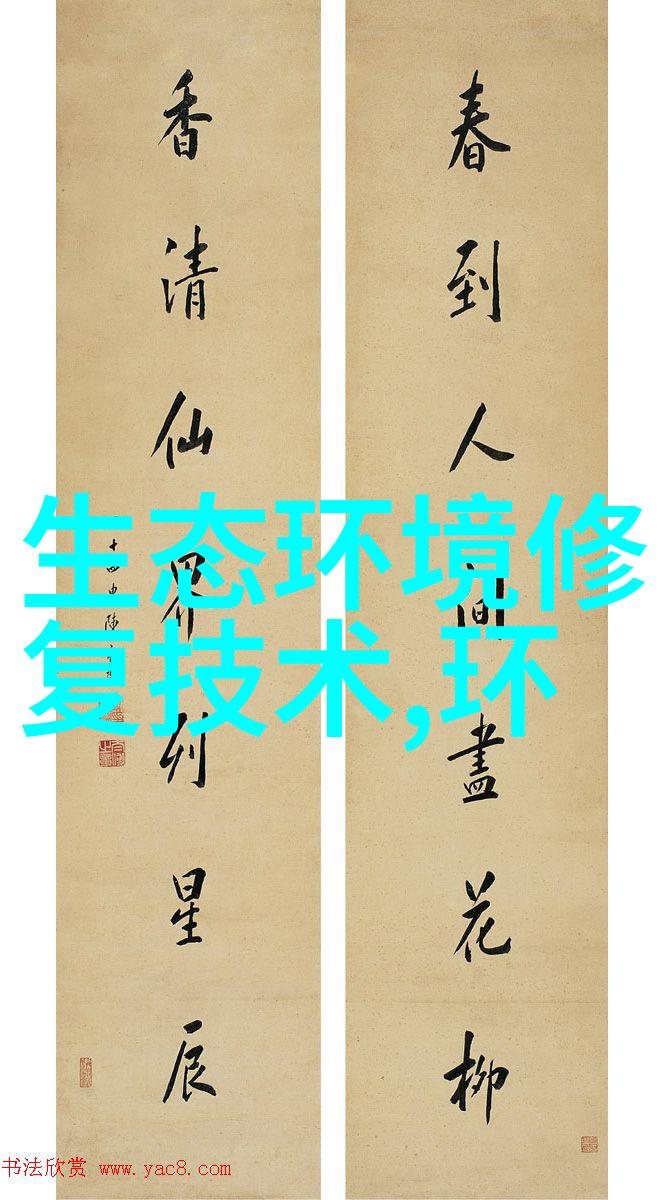 春到人间盡花柳
香清仙界列星辰
生态环境修
复技术,环
书法欣赏 www.yac8.com